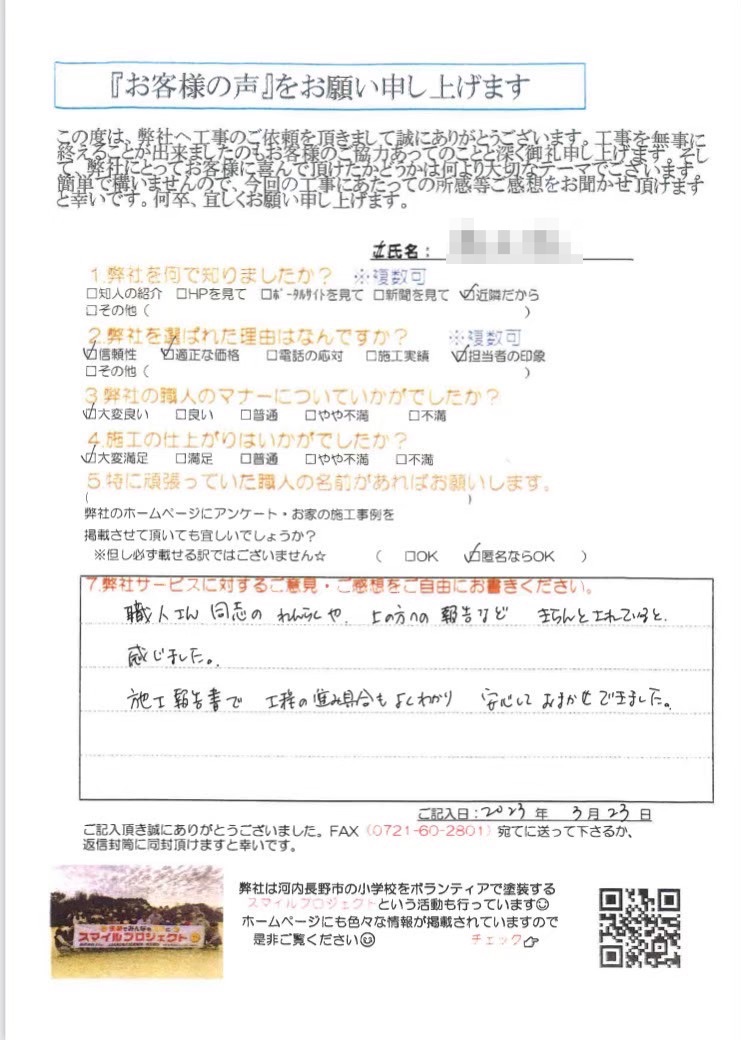 『お客様の声』をお願い申し上げます
この度は、弊社へ工事のご依頼を頂きまして誠にありがとうございます。工事を無事に
終えることが出来ましたのもお客様のご協力あってのことと深く御礼申し上げます。そし
て、弊社にとってお客様に喜んで頂けたかどうかは何より大切なテーマでございます。
簡単で構いませんので、今回の工事にあたっての所感等ご感想をお聞かせ頂けますと
と幸いです。何卒、宜しくお願い申し上げます。
氏名：
1.弊社を何で知りましたか？ ※複数可
□知人の紹介 □HPを見て □ﾎﾟｰﾀﾙｻｲﾄを見て □新聞を見て ☑近隣だから
□その他（ ）
2.弊社を選ばれた理由はなんですか？ ※複数可
☑信頼性 ☑適正な価格 □電話の応対 □施工実績 ☑担当者の印象
□その他（ ）
3.弊社の職人のマナーについていかがでしたか？
☑大変良い □良い □普通 □やや不満 □不満
4.施工の仕上がりはいかがでしたか？
☑大変満足 □満足 □普通 □やや不満 □不満
5.特に頑張っていた職人の名前があればお願いします。
（ ）
弊社のホームページにアンケート・お家の施工事例を
掲載させて頂いても宜しいでしょうか？
※但し必ず載せる訳ではございません☆ （ □OK ☑匿名ならOK ）
7.弊社サービスに対するご意見・ご感想をご自由にお書きください。
職人さん同志のれんらくや、上の方への報告など きちんとされていると、
感じました。
施工報告書で 工程の進み具合もよくわかり 安心しておまかせできました。
ご記入日：2023年 3月23日
ご記入頂き誠にありがとうございました。FAX（0721-60-2801）宛てに送って下さるか、
返信封筒に同封頂けますと幸いです。
笑顔でみんなを
スマイルプロジェクト
弊社は河内長野市の小学校をボランティアで塗装する
スマイルプロジェクトという活動も行っています☺
ホームページにも色々な情報が掲載されていますので
是非ご覧ください☺ チェック☞